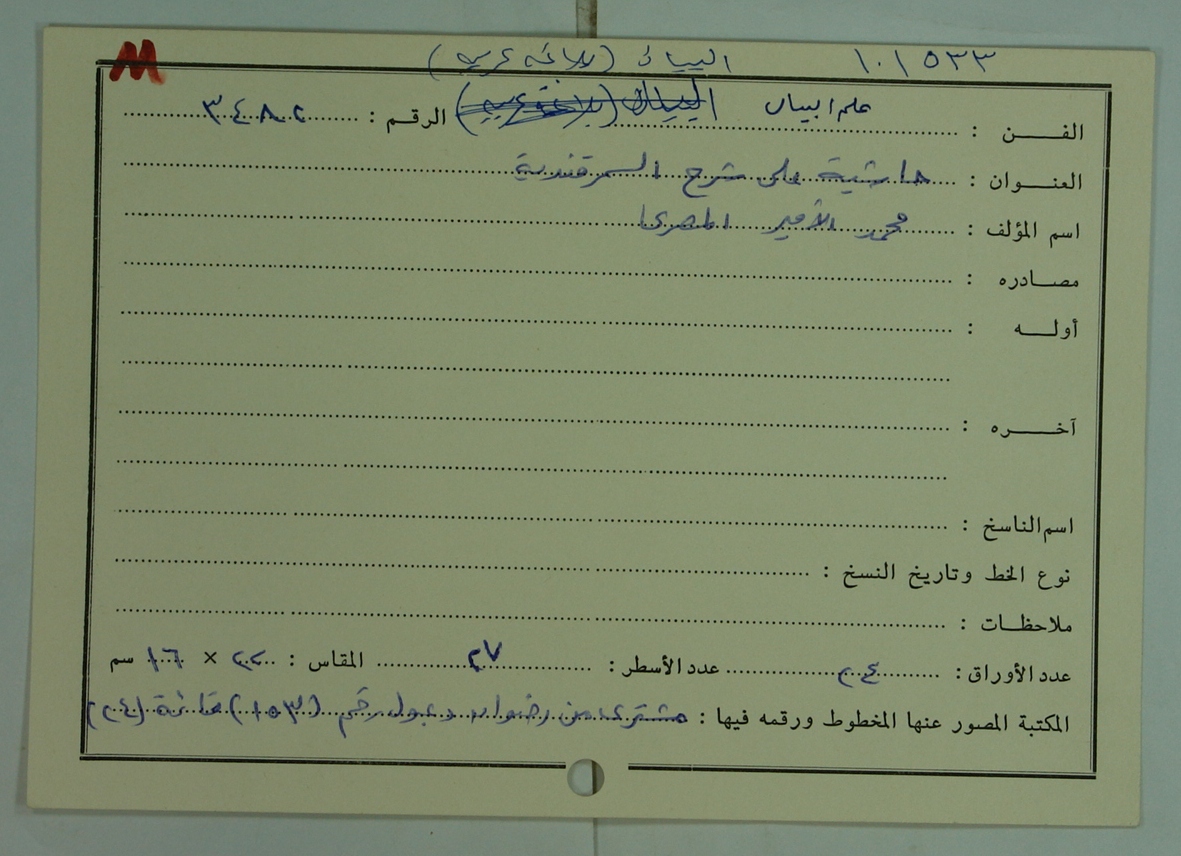 M
١٠١٥٣٣ البيان (بلاغة عربية)
الفـــن : علم البيان البيان (بلاغة عربية) الرقم : ٣٤٨٢
العنــوان : حاشية على شرح السمرقندية
اسم المؤلف : محمد الأمير المصري
مصــادره :
أولــــه :
آخــــره :
اسم الناسخ :
نوع الخط وتاريخ النسخ :
ملاحظــات :
عدد الأوراق : ٢٤ عدد الأسطر : ٢٧ المقاس : ٢٢ × ١٦ سم
المكتبة المصور عنها المخطوط ورقمه فيها : مشترى من رضوان دعبول رقم (١٥٣) قائمة (٢٤)